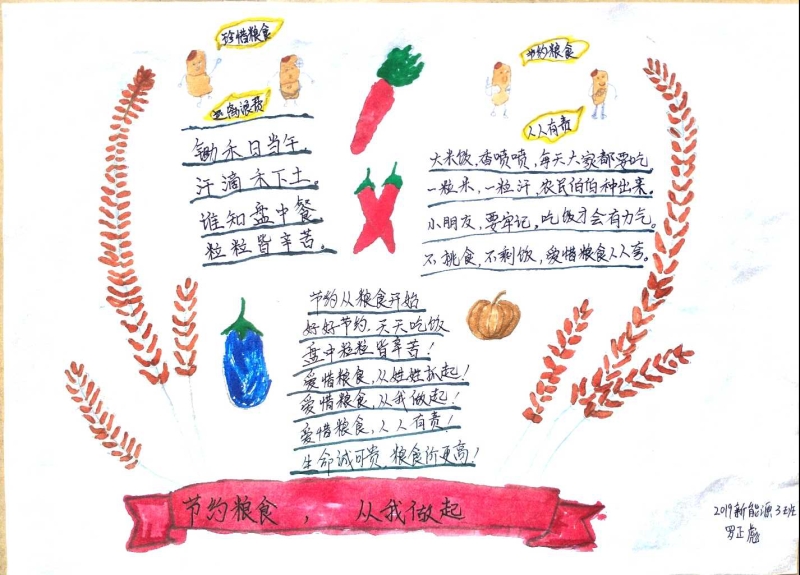 珍惜粮食
浪费
节约粮食
人人有责
锄禾日当午,
汗滴禾下土。
谁知盘中餐
粒粒皆辛苦。
大米饭,香喷喷,每天大家都要吃
一粒米,一粒汗,农民伯伯种出来。
小朋友,要牢记,吃饭才会有力气。
不挑食,不剩饭,爱惜粮食人人夸。
节约从粮食开始
好好节约,天天吃饭
盘中粒粒皆辛苦!
爱惜粮食,从娃娃抓起!
爱惜粮食,从我做起!
爱惜粮食,人人有责!
生命诚可贵,粮食价更高!
节约粮食,从我做起
2019新能源3班
罗正彪